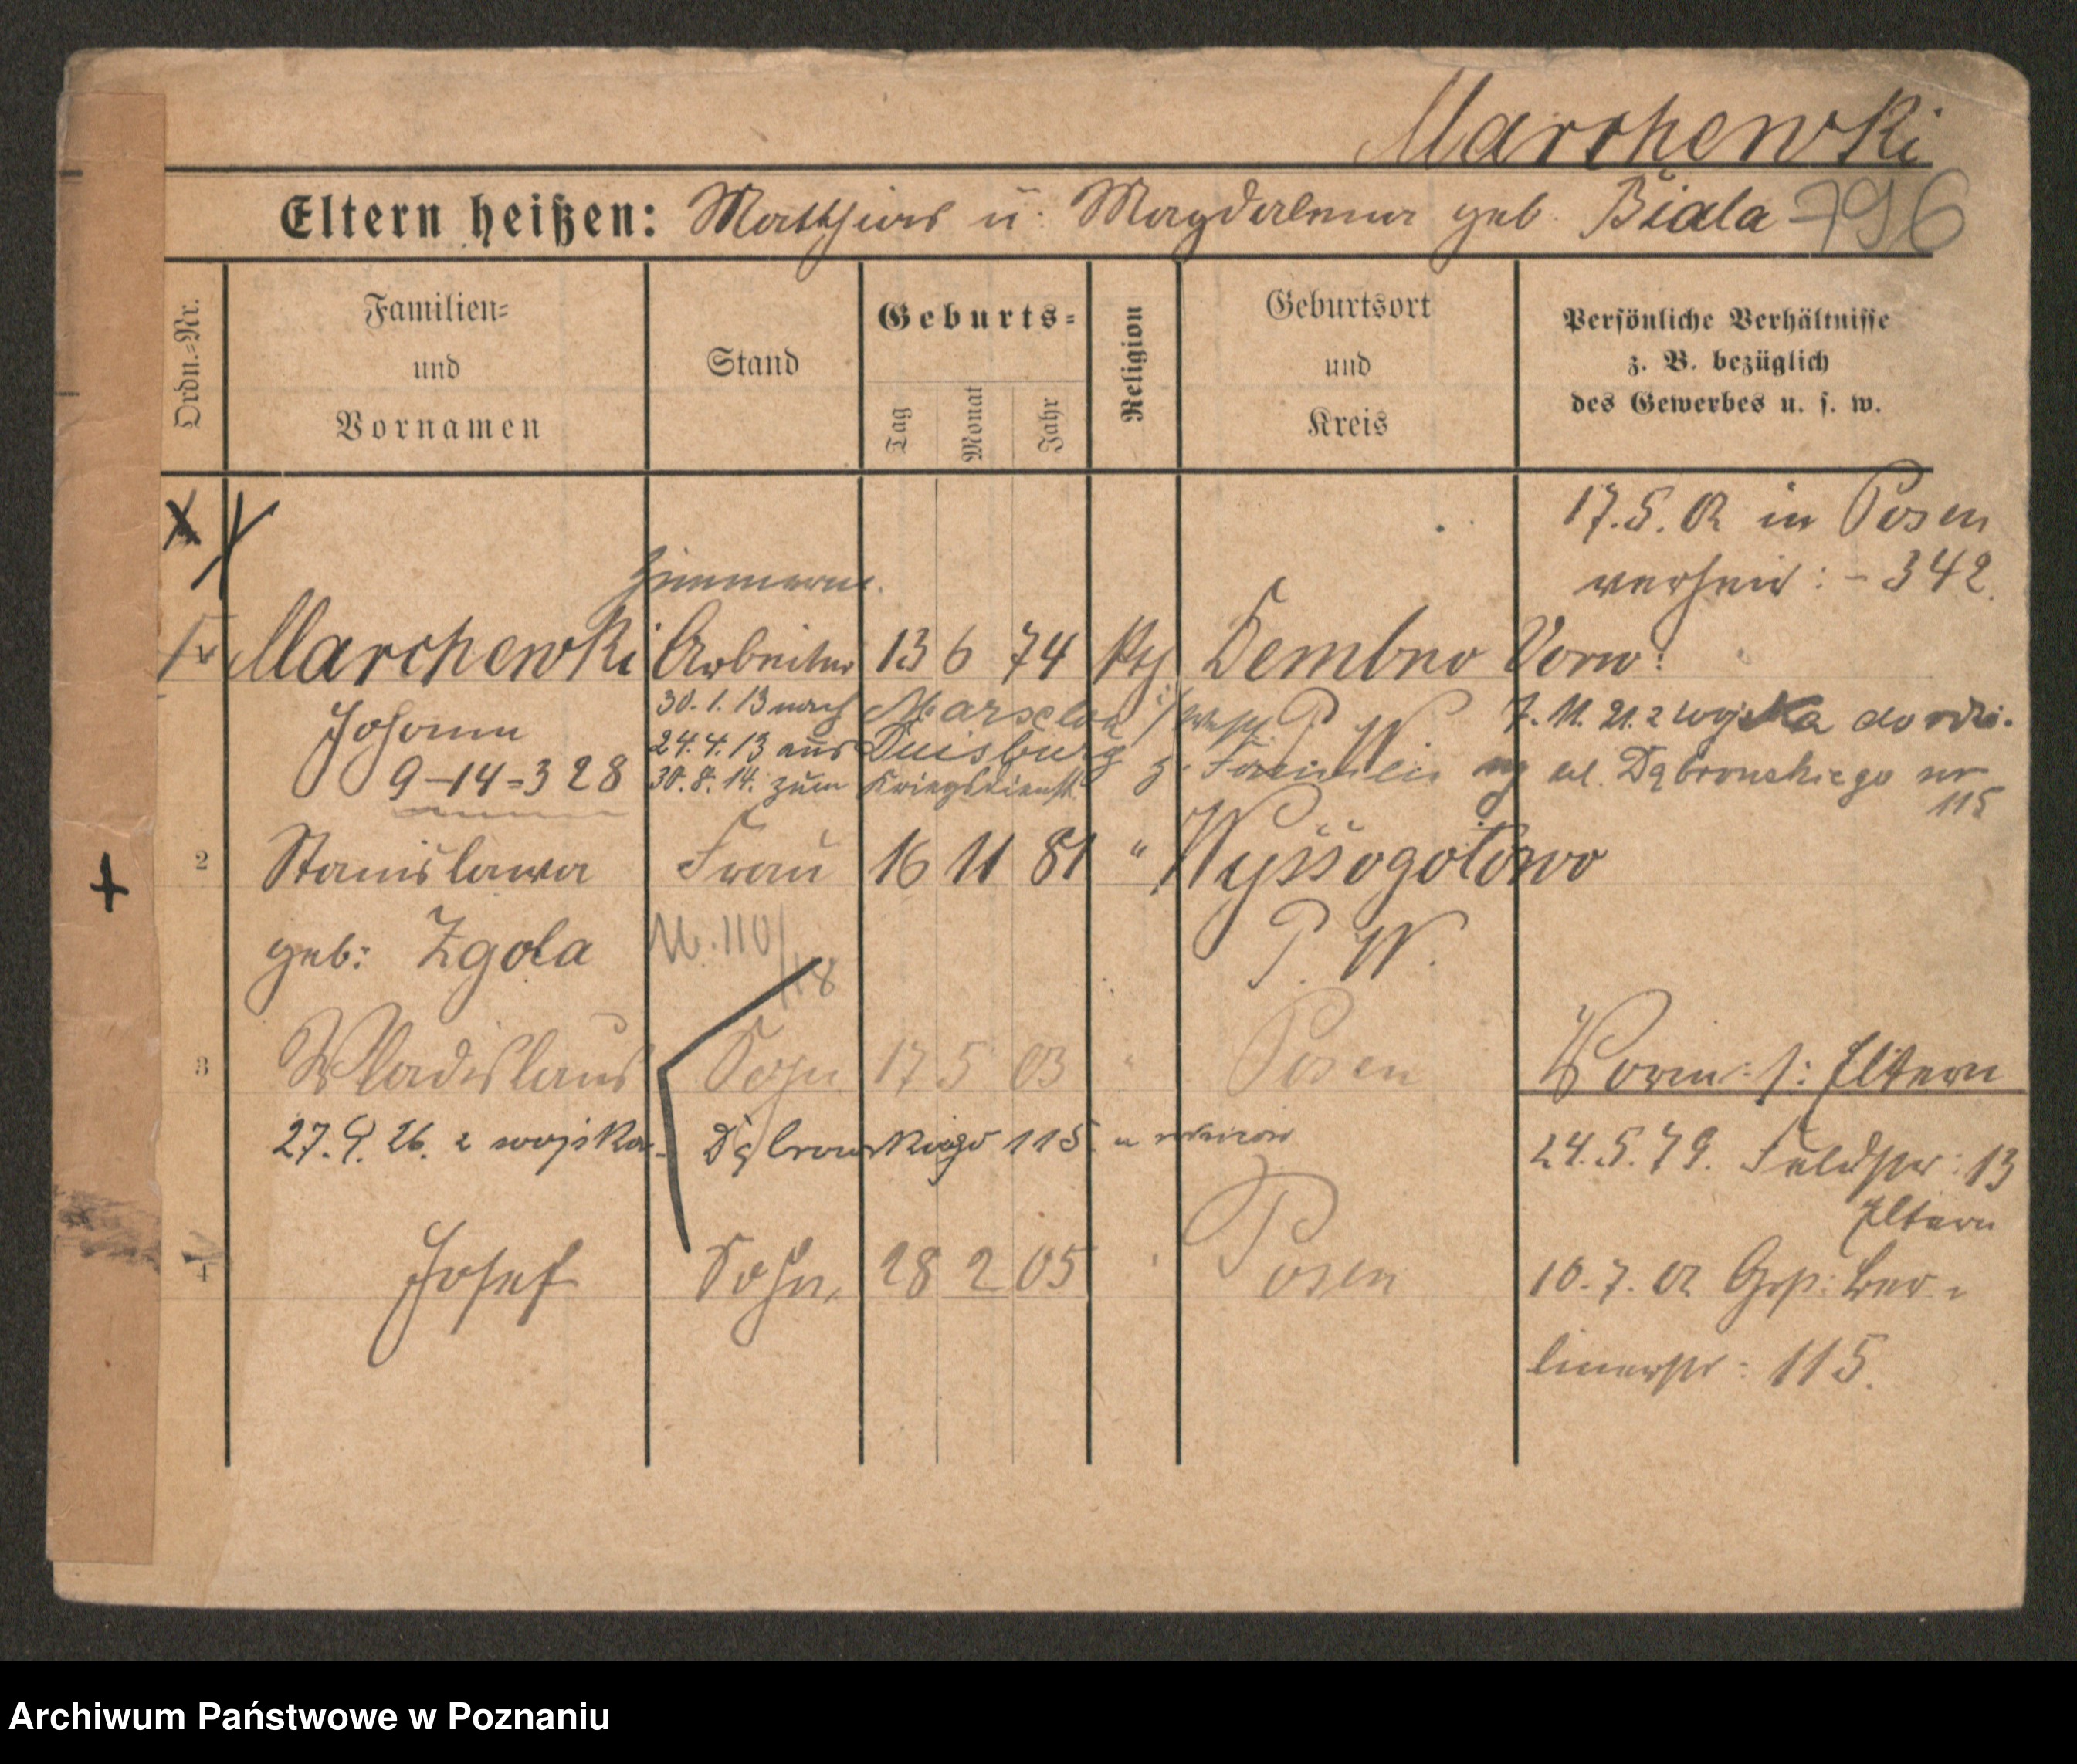 Marchewki
Eltern heißen: Matthias u. Magdalena geb. Biala 796
Ordn.-Nr.
Familien-
und
Vornamen
Stand
Geburts-
Tag
Monat
Jahr
Religion
Geburtsort
und
Kreis
Persönliche Verhältnisse
z. B. bezüglich
des Gewerbes u. s. w.
17.5.02 in Posen
verheir: - 342.
Zimmerm.
Marchewki Arbeiter 13 6 74 Dembno Vorw:
Johann
9-14=328
30.1.13 nach
24.4.13 aus Duisburg z. Familie
30.8.14. zum Kriegsdienst
P. W.
7.11.21. z wojska do
ul. Dąbrowskiego nr
115
2 Stanislawa Frau 16 11 81 " Wyssogotowo
geb: Zgola
P. W.
110/18
3 Wladislaus Sohn 17 5 03 " Posen
Vorm: s: Eltern
27.9.26. z wojska - Dąbrowskiego 115
24.5.79. Feldstr: 13
Eltern
4 Josef Sohn, 28 2 05 Posen
10.7.02 Grß: Ber-
linerstr: 115.
Archiwum Państwowe w Poznaniu